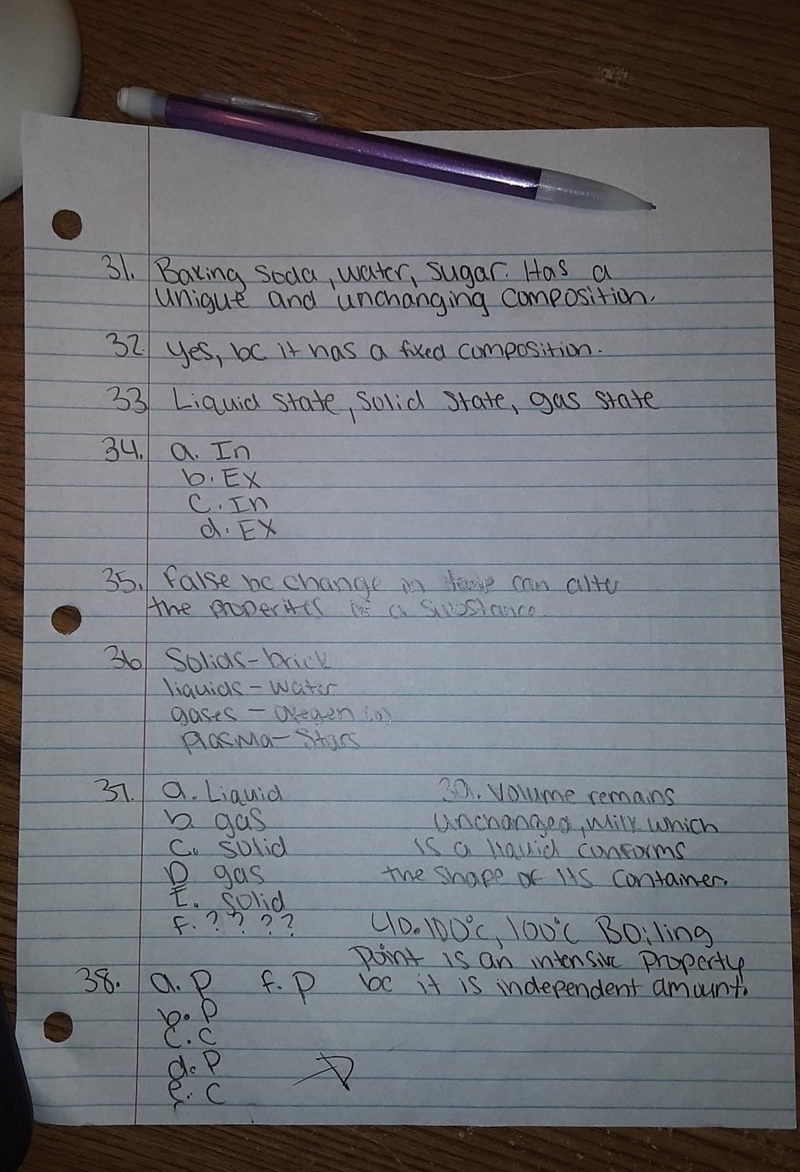 31. Baking soda, water, sugar. Has a
unique and unchanging composition.
32. Yes, bc it has a fixed composition.
33. Liquid state, Solid state, gas state
34. a. In
b. Ex
c. In
d. Ex
35. False bc change in can alte
the properites of a substance.
36. Solids-brick
liquids-water
gases-
plasma-Stars
37. a. Liquid
b. gas
c. solid
D. gas
E. solid
f. ? ? ? ?
38. a. P f. P
b. P
c. C
d. P
e. C
39. Volume remains
unchanged, milk which
is a liquid conforms
the shape of its container.
40. 100°c, 100°c Boiling
point is an intensive property
bc it is independent amount.